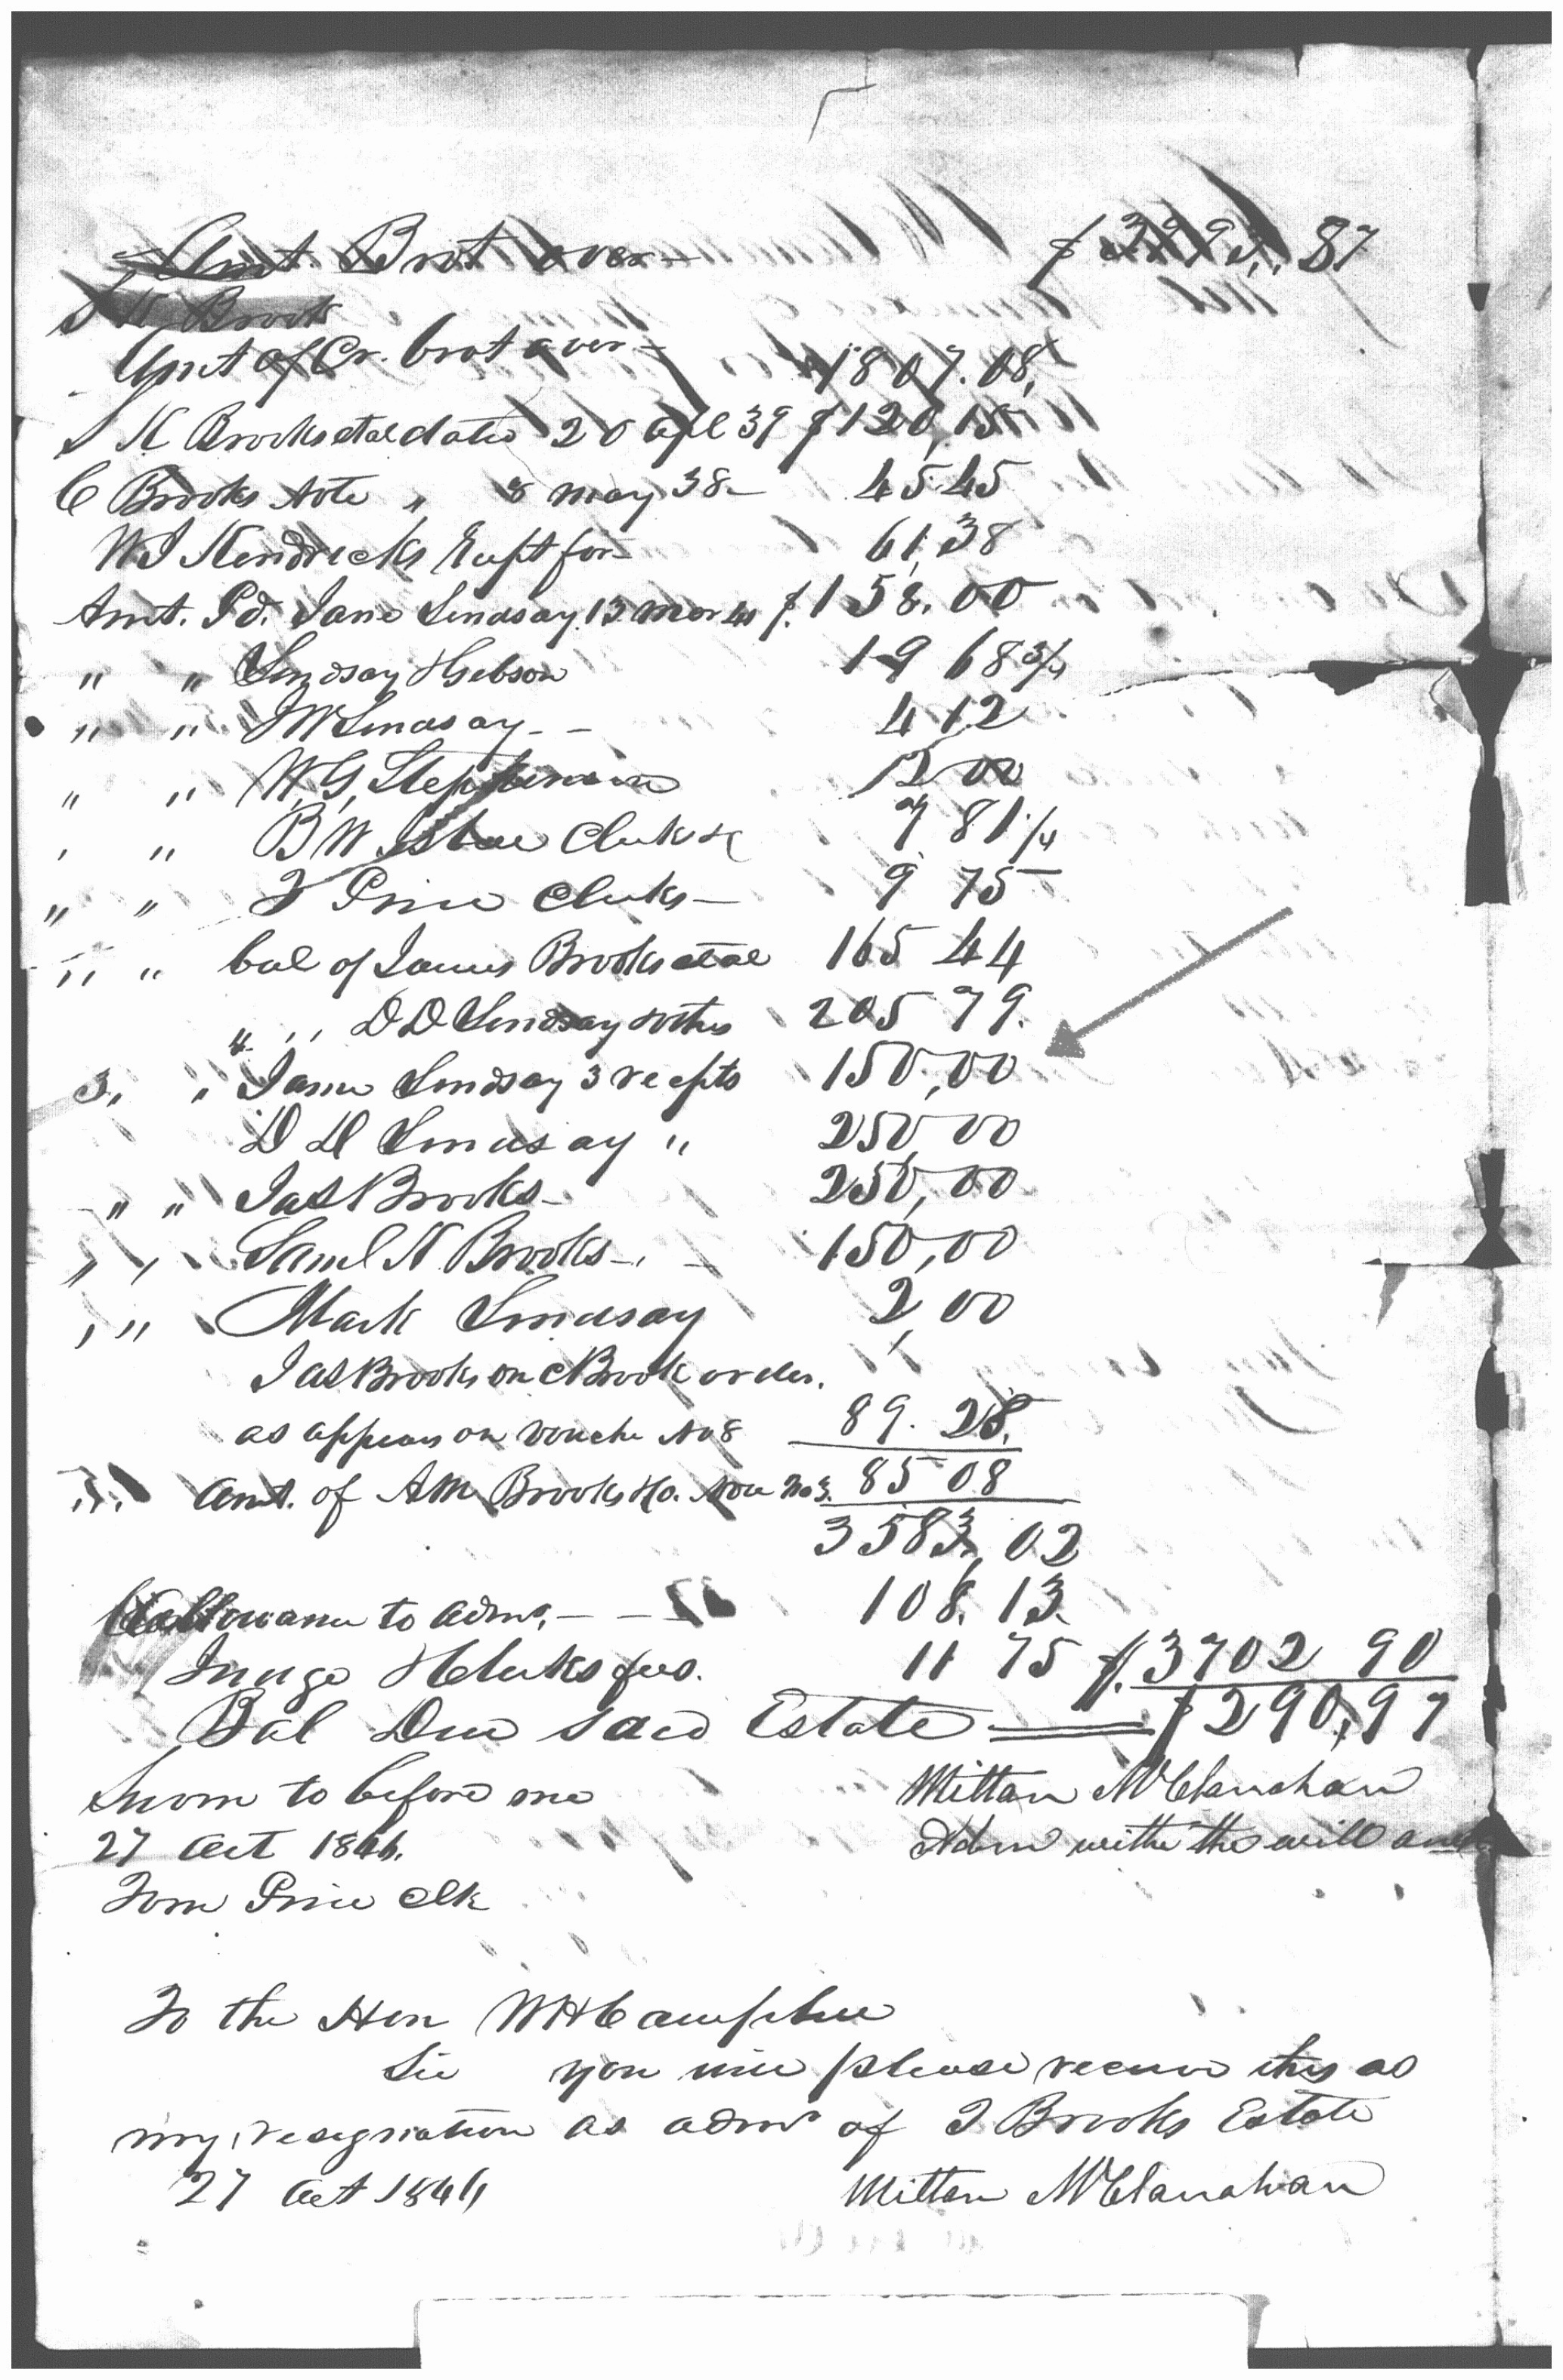 Amt. Brot over $ 3993.87
S K Brook
Amt of Cr. brot over 1807.08
S K Brooks etal dated 20 apl 39 $120,15
C Brooks Note " 8 may 38 45 45
W J Kendricks Rcept for 61,38
Amt. Pd. Jane Lindsay 13 Mar $158.00
" " Lindsay & Gebson 19 68 3/4
" " J W Lindsay - - 4 12
" " W. G. Stephenson 12 00
" " B W Clerk & 7 81 1/4
" " T Price Clerks 9 75
" " bal of James Brooks etal 165 44
" " D D Lindsay & others 205 79.
3. " Jane Lindsay 3 recpts 150,00
D D Lindsay " 250 00
" " Jas Brooks 250,00
" " Saml K Brooks - 150,00
" " Mark Lindsay 2,00
Jas Brooks on C Brook order.
as appears on vouche No 8 89.28.
Amt. of A M Brooks No 3. 85 08
3583,02
Allowance to Admr. - - 108.13
Judge & Clerks fees. 11 75 $.3702 90
Bal Due said Estate $290,97
Sworn to before me Milton McClanahan
27 Oct 1846. Adm with the will
Tom Price Clk
To the Hon W H Campbell
Sir you will please receive this as
my resignation as admr of J Brooks Estate
27 Oct 1846 Milton McClanahan